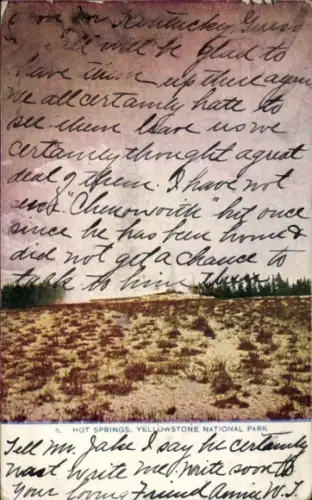 on Mr. Kentucky. Guess
Will be glad to
have them up there again
We all certainly hate to
see them leave us we
certainly thought a great
deal of them. I have not
seen "Chenoworth" but once
since he has been home &
did not get a chance to
talk to him then
6. HOT SPRINGS, YELLOWSTONE NATIONAL PARK
Tell Mr. Jake I say he certainly
must write me Write soon to
Your loving Friend Annie W. T.